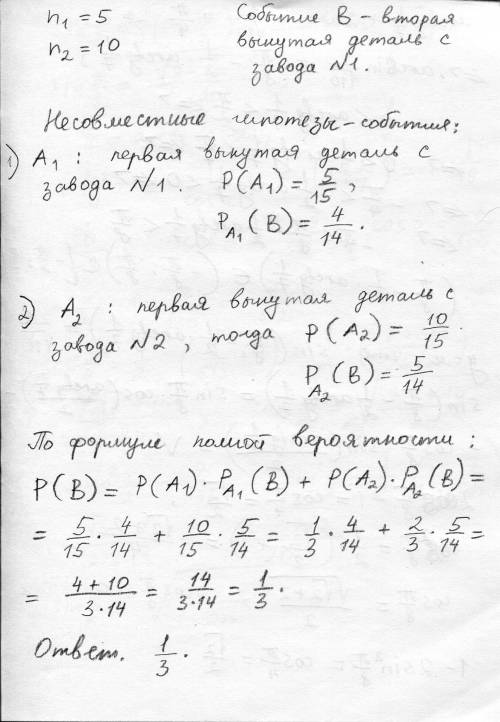 n₁ = 5 Событие B – вторая
n₂ = 10 вынутая деталь с
завода N1.
Несовместные гипотезы–события:
1) A₁ : первая вынутая деталь с
завода N1. P(A₁) = 5/15,
P_A₁(B) = 4/14.
2) A₂ : первая вынутая деталь с
завода N2, тогда P(A₂) = 10/15
P_A₂(B) = 5/14
По формуле полной вероятности:
P(B) = P(A₁)·P_A₁(B) + P(A₂)·P_A₂(B) =
= 5/15 · 4/14 + 10/15 · 5/14 = 1/3 · 4/14 + 2/3 · 5/14 =
= (4+10)/(3·14) = 14/(3·14) = 1/3.
Ответ. 1/3.